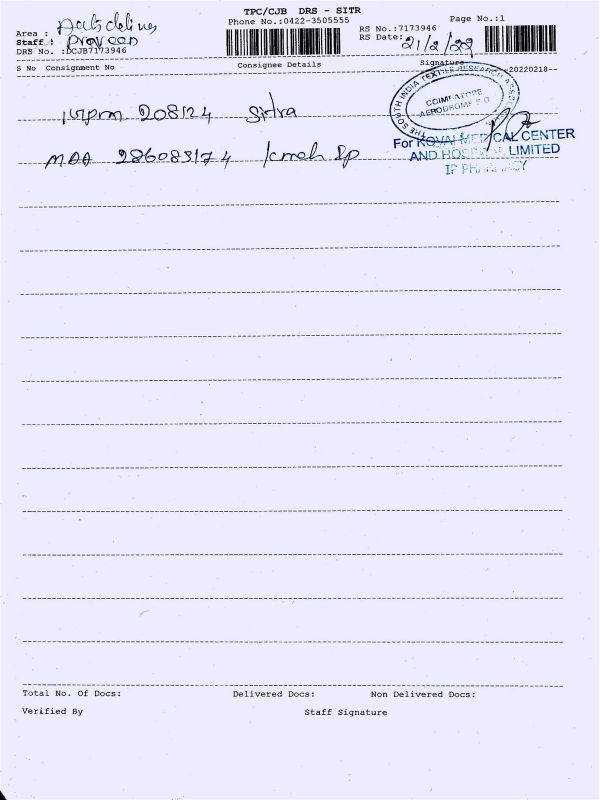 TPC/CJB DRS - SITR
Phone No.:0422-3505555
Page No.:1
Area :
Staff : Praveen
DRS No. :DCJB7173946
RS No.:7173946
RS Date: 21/2/22
S No Consignment No
Consignee Details
Signature
--20220218--
208124 Sitra
THE SOUTH INDIA TEXTILE RESEARCH ASSOCIATION
COIMBATORE
AERODROME P.O
MAA 286083174 kmch Ip
For KOVAI MEDICAL CENTER
AND HOSPITAL LIMITED
IP PHARMACY
Total No. Of Docs:
Delivered Docs:
Non Delivered Docs:
Verified By
Staff Signature